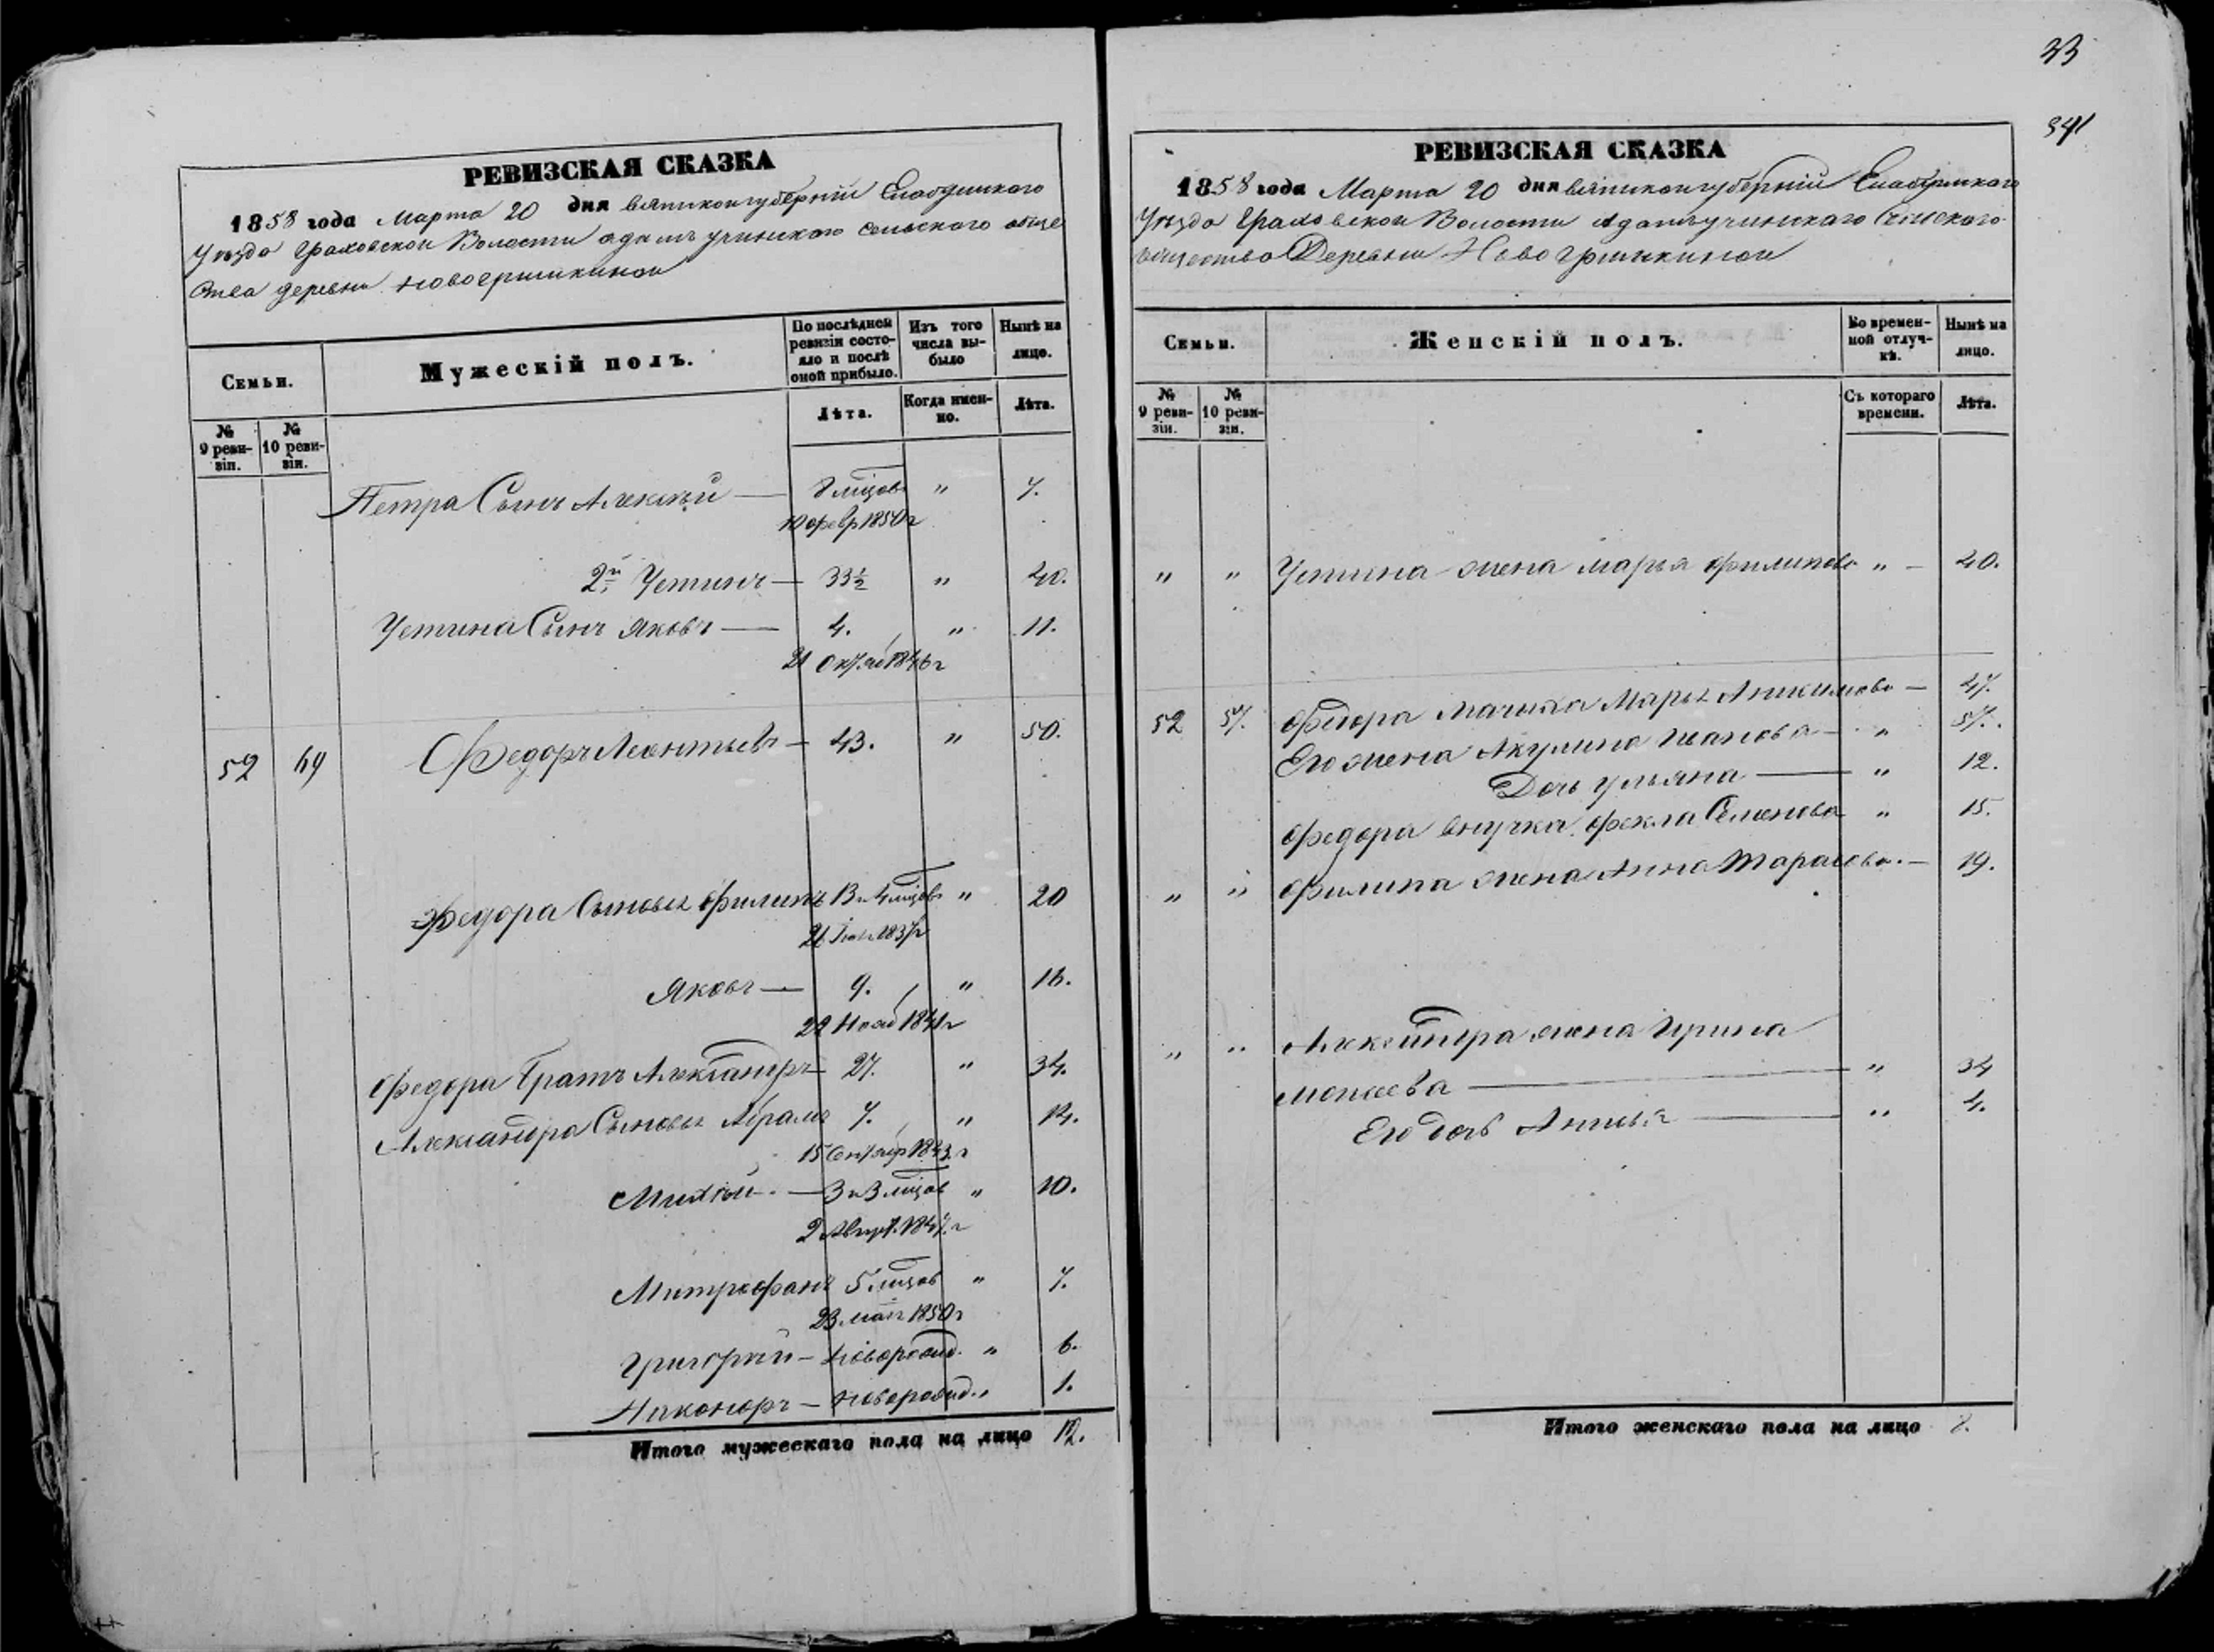 33
341
РЕВИЗСКАЯ СКАЗКА
1858 года Марта 20 дня вятской губерніи Елабужскаго
Уѣзда Граховской Волости адамъучинскаго сельскаго обще
ства деревни новогришкиной
Семьи.
Мужескій полъ.
По послѣдней ревизіи состояло и послѣ оной прибыло.
Изъ того числа выбыло
Нынѣ на лицо.
№ 9 ревизіи.
№ 10 ревизіи.
Лѣта.
Когда именно.
Лѣта.
Петра Сынъ Алексѣй — 8 мцов " 7.
10 февр 1850 г
2й Устинъ — 33½ " 40.
Устина Сынъ Яковъ — 4. " 11.
21 Октяб 1846 г
52 Федоръ Леонтьевъ — 43. " 50.
Федора Сыновья Филипъ 13 и 4 мцов " 20
21 1837 г
Яковъ — 9. " 16.
22 Нояб 1841 г
Федора Братъ Александръ 27. " 34.
Александра Сыновья Абрамъ 7. " 14.
15 Сентябр 1843 г
Михей — 3 и 3 мцов " 10.
2 Август. 1847 г
Митрофанъ 5 мцов " 7.
23 мая 1850 г
Григорий — новорожд. " 6.
Никоноръ — новорожд. " 1.
Итого мужескаго пола на лицо 12.
РЕВИЗСКАЯ СКАЗКА
1858 года Марта 20 дня вятской губерніи Елабужскаго
Уѣзда Граховской Волости Адамъучинскаго Сельскаго
общества Деревни Новогришкиной
Семьи.
Женскій полъ.
Во временной отлучкѣ.
Нынѣ на лицо.
№ 9 ревизіи.
№ 10 ревизіи.
Съ котораго времени.
Лѣта.
" " Устина жена марья филипова " — 40.
52 Федора Мачиха Марья Аникимова — 47.
Его жена Акулина Иванова — " 57.
Дочь ульяна — " 12.
Федора внучка фекла Семенова " 15.
" " Филипа жена Анна Тарасова. — 19.
" " Александра жена Ирина
моисеева — " 34
Его дочь — " 4.
Итого женскаго пола на лицо 8.